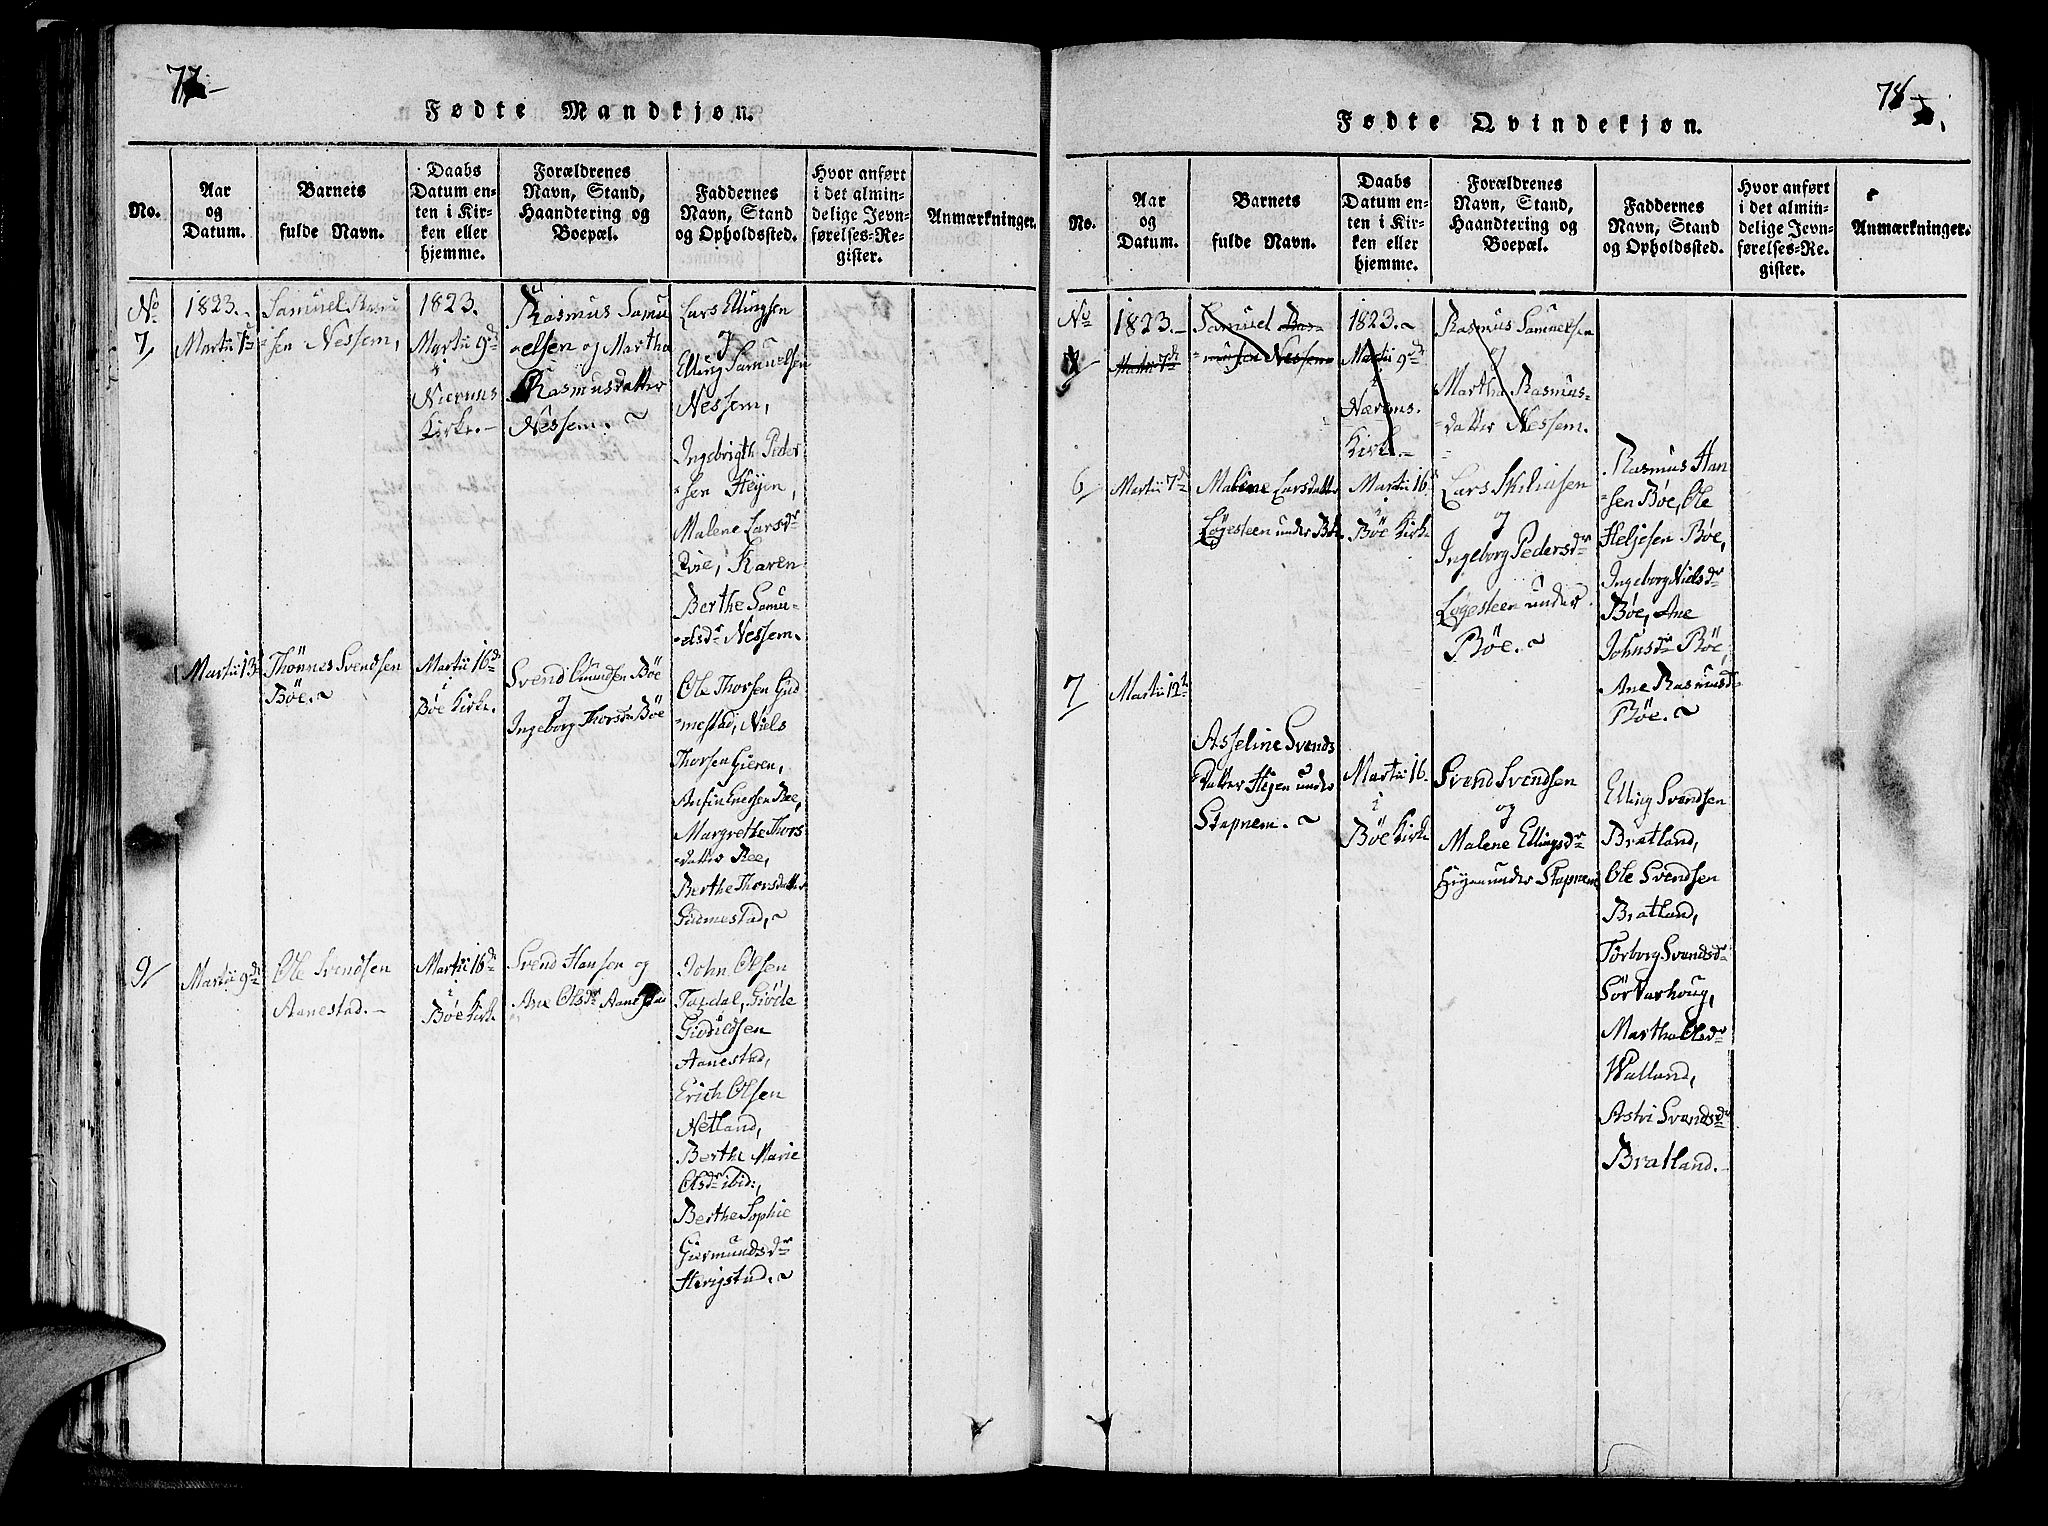 77
Fødte Mandkjøn.
No.
Aar
og
Datum.
Barnets
fulde Navn.
Daabs
Datum en-
ten i Kir-
ken eller
hjemme.
Forældrenes
Navn, Stand,
Haandtering og
Boepæl.
Faddernes
Navn, Stand
og Opholdssted.
Hvor anført
i det almin-
delige Jevn-
førelses-Re-
gister.
Anmærkninger.
No
7
1823.
Martii 7d
Samuel Rasmu
=sen Nessem,
1823.
Martii 9d
i
Nierums
Kirke.-
Rasmus Samu
=elsen og Martha
Rasmusdatter
Nessem.~
Lars Ellingsen
og
Elling Samuelsen
Nessem,
Ingebrigth Peder
=sen Heyen,
Malene Larsdr
Qvie, Karen
Berthe Samu-
=elsdr Nessem.
Martii 13
Thönnes Svendsen
Böe.~
Martii 16d
i
Böe Kirke.
Svend Omundsen Böe
og
Ingeborg Thorsdr Böe
Ole Thorsen Gud
=mestad, Niels
Thorsen Gieren,
Anfin Enersen Ree,
Margrethe Thors
=datter Ree,
Berthe Thorsdatter
Gudmestad,~
9
Martii 9d
Ole Svendsen
Aanestad.-
Martii 16d
i
Böe Kirk
Svend Hansen og
Ane Olsdr Aanestad
John Olsen
Tapdal, Giöde
Aanestad,
Erich Olsen
Netland,
Berthe Marie
Olsdr ibid:,
Berthe Sophie
Giermundsdr
Herigstad.~
78
Fødte Qvindekjøn.
No.
Aar
og
Datum.
Barnets
fulde Navn.
Daabs
Datum en-
ten i Kir-
ken eller
hjemme.
Forældrenes
Navn, Stand,
Haandtering og
Boepæl.
Faddernes
Navn, Stand
og Opholdssted.
Hvor anført
i det almin-
delige Jevn-
førelses-Re-
gister.
Anmærkninger.
No
1823.-
Martii 7d
Samuel Ras-
=musen Nessem
1823.~
Martii 9d
i
Nærems.
Kirke.-
Rasmus Samuelsen
og
Martha Rasmus-
=datter Nessem.
6
Martii 7d
Malene Larsdatter
Lögesteen under Böe
Martii 16
i
Böe Kirke
Lars
og
Ingeborg Pedersdr
Lögesteen under
Böe.~
Rasmus Han
=sen Böe, Ole
Heljesen Böe,
Ingeborg Nielsdr
Böe, Ane
Johnsdr Böe,
Ane Rasmusd
Böe.~
7
Martii 12t
Asseline Svends
Datter Hejen under
Stapnem.~
Martii 16.
i
Böe Kirke
Svend Svendsen
og
Malene Ellingsdr
Heyen under Stapnem
Elling Svendsen
Bratland,
Ole Svendsen
Bratland,
Torborg Svendsdr
Sör Varhoug,
Martha Olsdr
Walland,
Astri Svendsdr
Bratland.-